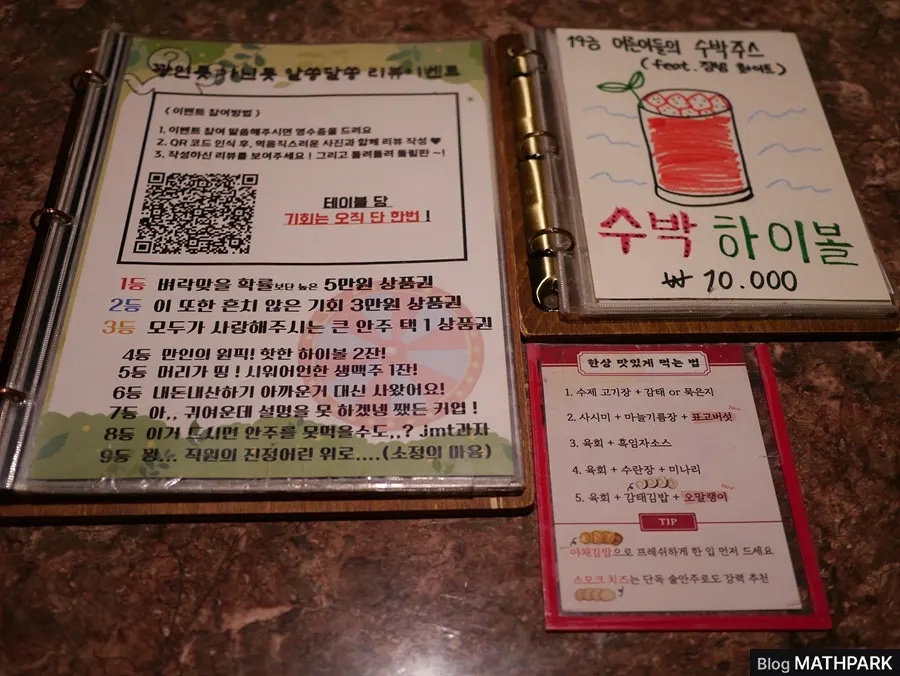 꽝인듯 아닌듯 알쏭달쏭 리뷰이벤트
< 이벤트 참여방법 >
1. 이벤트 참여 말씀해주시면 영수증을 드려요
2. QR 코드 인식 후, 먹음직스러운 사진과 함께 리뷰 작성 ♥
3. 작성하신 리뷰를 보여주세요 ! 그리고 돌려돌려 돌림판 ~!
테이블 당
기회는 오직 단 한번 !
1등 벼락맞을 확률보단 높은 5만원 상품권
2등 이 또한 흔치 않은 기회 3만원 상품권
3등 모두가 사랑해주시는 큰 안주 택 1 상품권
4등 만인의 원픽! 핫한 하이볼 2잔!
5등 머리가 띵 ! 시원어언한 생맥주 1잔!
6등 내돈내산하기 아까운거 대신 사왔어요!
7등 아.. 귀여운데 설명을 못 하겠넹 쨌든 커엽 !
8등 이거 드시면 안주를 못먹을수도..? jmt과자
9등 꽝... 직원의 진정어린 위로....(소정의 마음)
19금 어른이들의 수박주스
(feat. 화이트)
수박 하이볼
₩ 10.000
한상 맛있게 먹는 법
1. 수제 고기장 + 감태 or 묵은지
2. 사시미 + 마늘기름장 + 표고버섯
3. 육회 + 흑임자소스
4. 육회 + 수란장 + 미나리
5. 육회 + 감태김밥 + 오말랭이
TIP
야채김밥으로 프레쉬하게 한 입 먼저 드세요
스모크 치즈는 단독 술안주로도 강력 추천
Blog MATHPARK